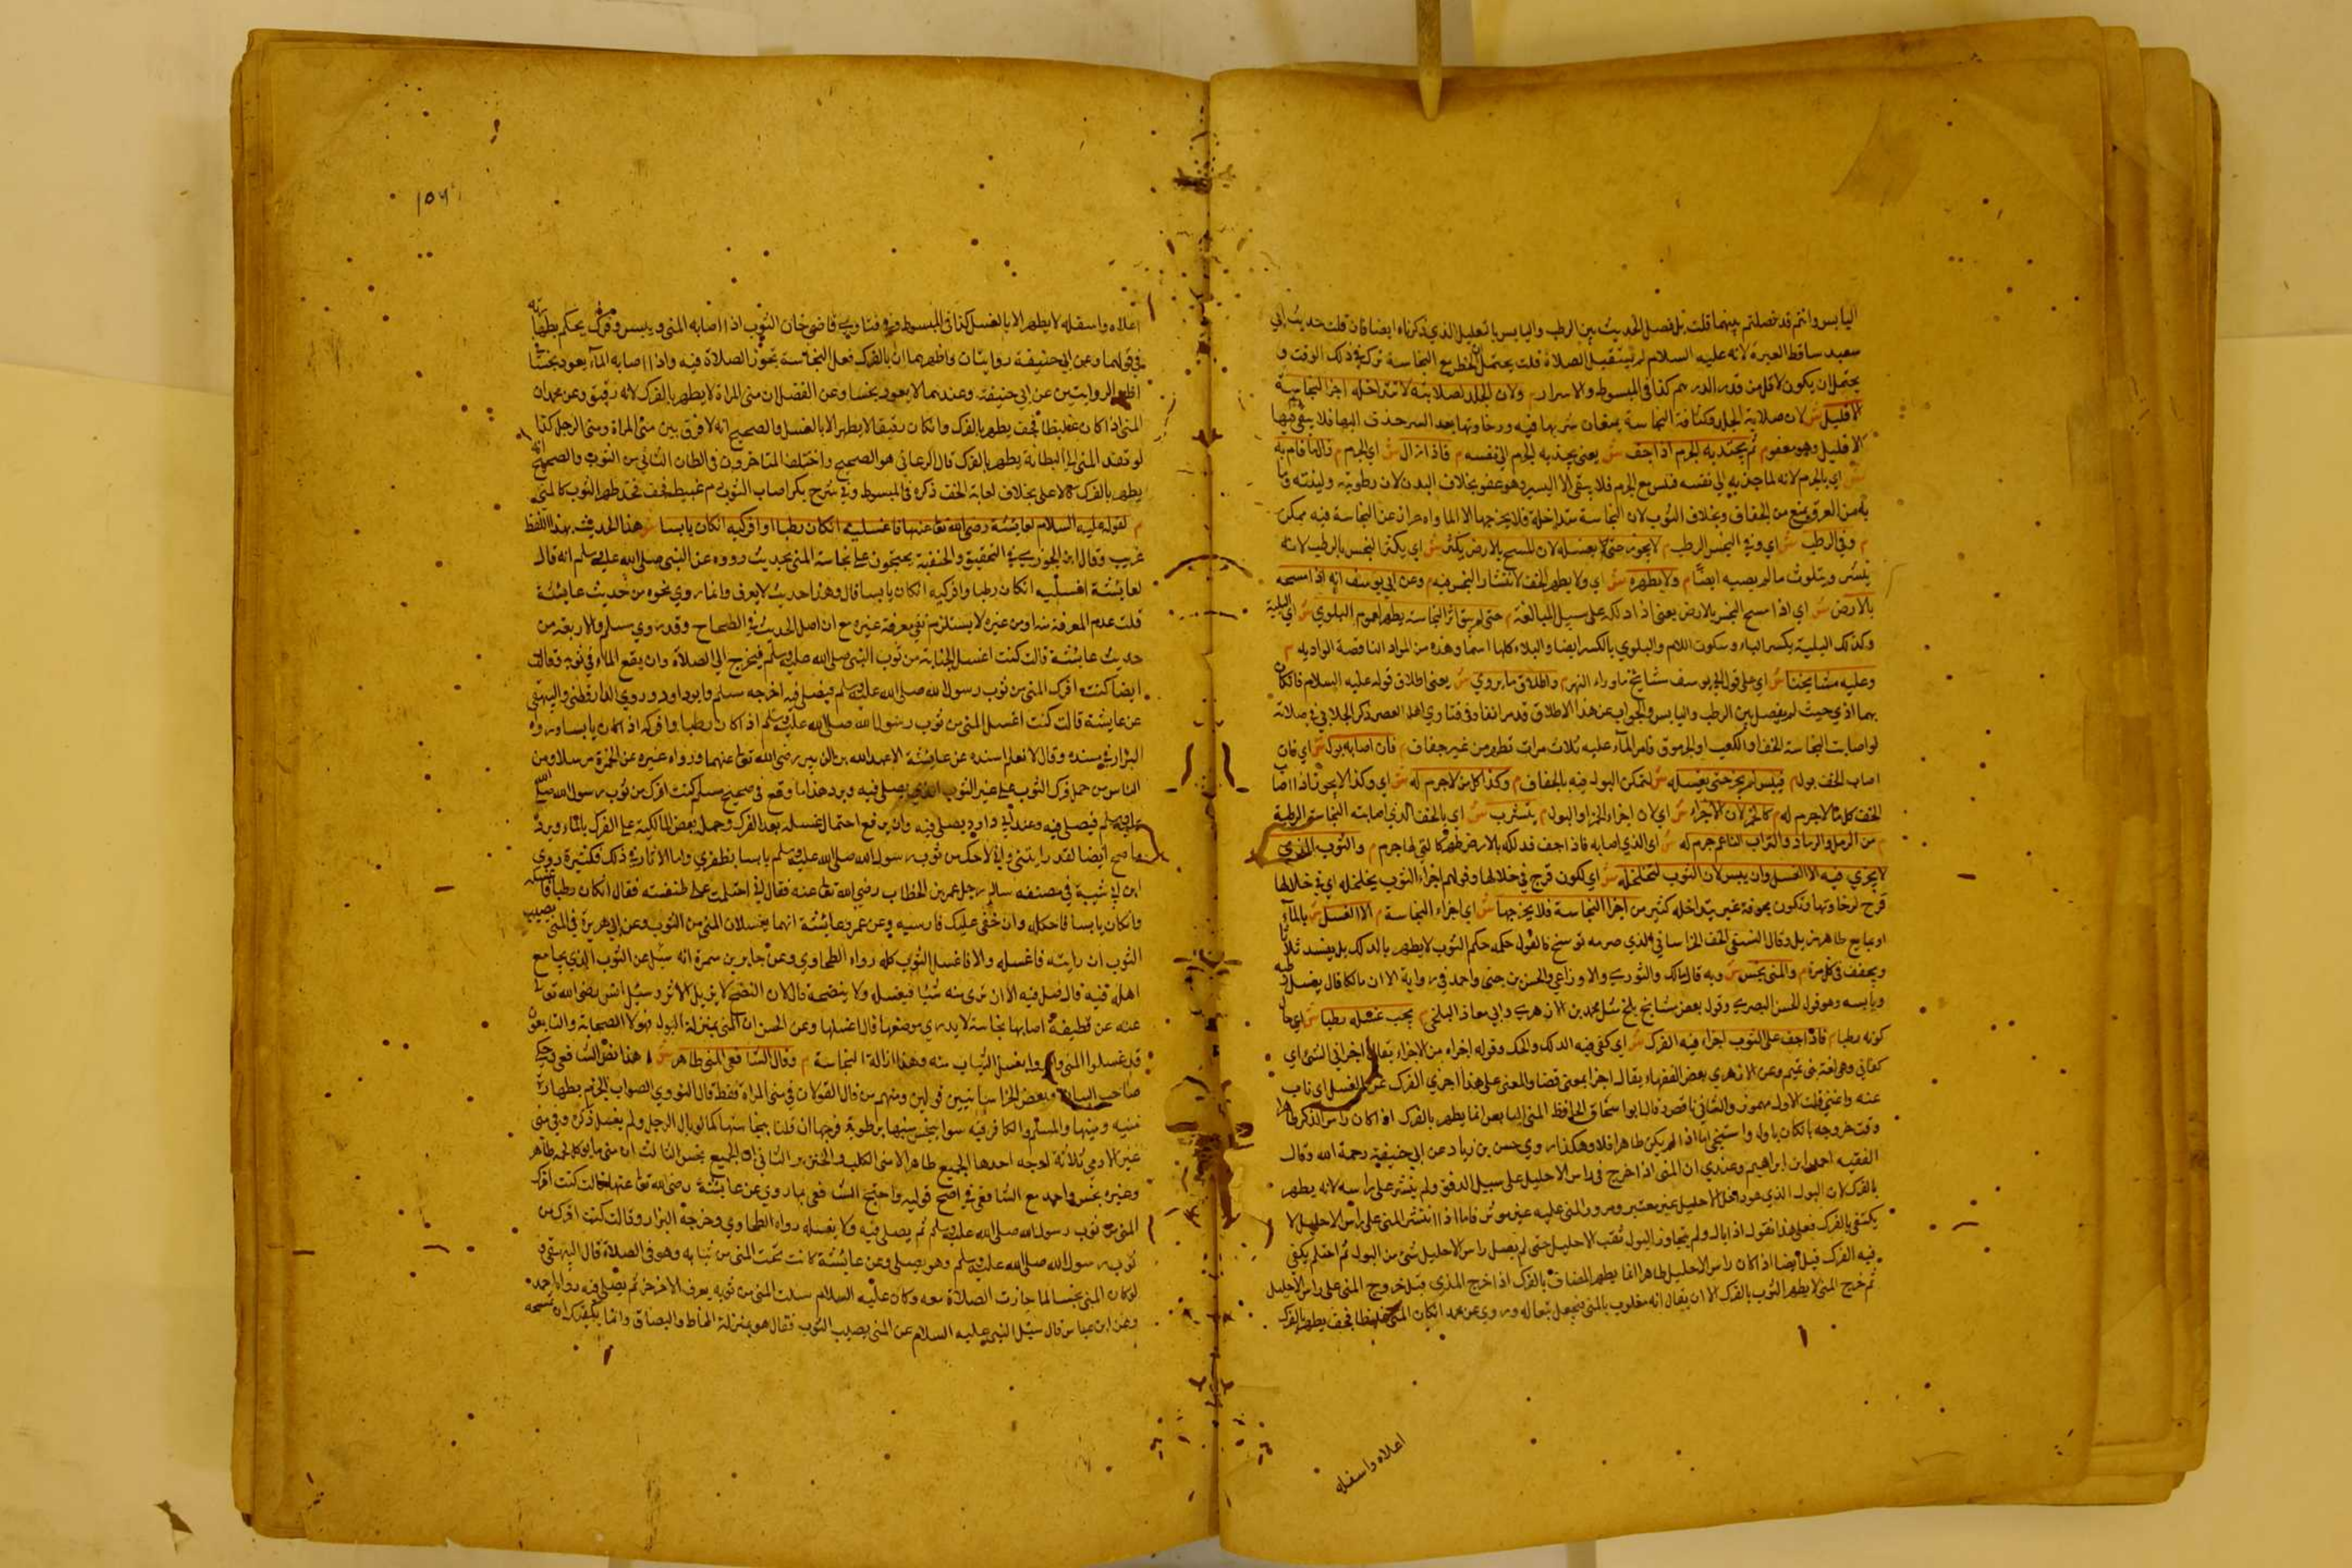 اليابس وانتم قد فصلتم بينهما قلت بل فصل الحديث بين الرطب واليابس بالتعليل الذي ذكرناه ايضا فان قلت حديث ابي
سعيد ساقط العبرة لانه عليه السلام لم يستقبل الصلاة قلت يحتمل ان الحظر مع النجاسة نزل في ذلك الوقت و
يحتمل ان يكون لاقل من قدر الدرهم كذا في المبسوط والاسرار م ولان الجلد لصلابته لا تتداخله اجزا النجاسة
الا قليل ش لان صلابة الجلد وكثافة النجاسة يمنعان شربها فيه ورخاوتها بعد السر حذف اليها فلا يبقى فيها
الا قليل وهو معفو م ثم يجتذبه الجرم اذا جف ش يعني يجذبه الجرم الى نفسه م فاذا زال ش اي الجرم م زال ما قام به
ش اي بالجرم لانه لما جذبه الى نفسه فيبس مع الجرم فلا يبقى الا اليسير وهو عفو بخلاف البدن لان رطوبته ولينته وما
به من العرق يمنع من الجفاف وبخلاف الثوب لان النجاسة متداخلة فلا يخرجها الا الماء واحتراز عن النجاسة فيه ممكن
م وفي الرطب ش اي وفي النجس الرطب م لا يجوز حتى يغسله لان المسح بالارض يكثره ش اي يكثر النجس بالرطب لانه
ينتشر ويتلوث ما لم يصبه ايضا م ولا يطهره ش اي ولا يطهر الخف لانتشار النجس فيه م وعن ابي يوسف انه اذا مسحه
بالارض ش اي اذا مسح النجس بالارض يعني اذا دلكه على سبيل المبالغة م حتى لم يبق اثر النجاسة يطهر لعموم البلوى ش اي البلية
وكذلك البلية بكسر الباء وسكون اللام والبلوى بالكسر ايضا والبلاء كلها اسما وهذه من المواد الناقصة الواوية م
وعليه مشايخنا ش اي على قول ابي يوسف مشايخ ما وراء النهر م واطلاق ما يروى ش يعني اطلاق قوله عليه السلام فان كان
بهما اذى حيث لم يفصل بين الرطب واليابس والجواب عن هذا الاطلاق قد مر انفا وفي فتاوي اهل العصر ذكر الجلابي في صلاته
لو اصابت النجاسة الخف او الكعب او الجرموق فامر الماء عليه ثلاث مرات تطهر من غير جفاف م فان اصابه بول ش اي فان
اصاب الخف بول م فيبس لم يجز حتى يغسله ش لتمكن البول فيه بالجفاف م وكذا كل ما لا جرم له ش اي وكذا لا يجوز اذا اصا
الخف كل ما لا جرم له م كالخمر لان الاجزاء ش اي لان اجزاء الخمر او البول م يتشرب ش اي بالخف الذي اصابته النجاسة الرطبة
م من الرمل والرماد والتراب الناعم جرم له ش اي الذي اصابه فاذا جف فدلكه بالارض طهر كالتي لها جرم م والثوب
لا يجزي فيه الا الغسل وان يبس لان الثوب لتخلخله ش اي لكون فرج في خلالها وقولهم اجزاء الثوب متخلخله اي في خلالها
فرج لرخاوتها وتكون مجوفة غير متداخله كثير من اجزا النجاسة فلا يخرجها ش اي اجزاء النجاسة م الا الغسل ش بالماء
او بمايع طاهر مزيل وقال النسفي الخف الخراساني الذي صرمه موشح فالقول حكمه حكم الثوب لا يطهر بالدلك بل يغسل ثلاثا
ويجفف في كل مرة م والمني نجس ش وبه قال مالك والثوري والاوزاعي والحسن بن حي واحمد في رواية الا ان مالكا قال يغسل رطبه
ويابسه وهو قول الحسن البصري وقول بعض مشايخ بلخ مثل محمد بن الازهر وابي معاذ البلخي م يجب غسله رطبا ش اي حال
كونه رطبا م فاذا جف على الثوب اجزأ فيه الفرك ش اي كفى فيه الدلك والحك وقوله اجزاه من الاجزاء يقال اجزاني الشئ اي
كفاني وهي لغة بني تميم وعن الازهري بعض الفقهاء يقال اجزا بمعنى قضا والمعنى على هذا اجزي الفرك عن الغسل اي ناب
عنه واغني قلت الاول مهموز والثاني ناقص وقال ابو اسحاق الحافظ المني اليابس انما يطهر بالفرك اذا كان راس الذكر طاهرا
وقت خروجه بان كان بال واستنجى اما اذا لم يكن طاهرا فلا وهكذا روى حسن بن زياد عن ابي حنيفة رحمة الله وقال
الفقيه احمد بن ابراهيم وعندي ان المني اذا خرج في راس الاحليل على سبيل الدفق ولم ينتشر على راسه لانه يطهر
بالفرك لان البول الذي هو داخل الاحليل غير معتبر ومرور المني عليه غير مؤثر فاما اذا انتشر المني على راس الاحليل لا
يكتفى بالفرك فعلى هذا نقول اذا بال ولم يتجاوز البول ثقب الاحليل حتى لم يصل راس الاحليل شئ من البول ثم احتلم يكفي
فيه الفرك قيل ايضا اذا كان راس الاحليل طاهرا انما يطهر المصاب بالفرك اذا خرج المذي قبل خروج المني على راس الاحليل
ثم خرج المني لا يطهر الثوب بالفرك الا ان يقال انه مغلوب بالمني فيجعل تبعا له وروي عن محمد ان كان المني غليظا فجف يطهر بالفرك
اعلاه واسفله
١٥٦
اعلاه واسفله لا يطهر الا بالغسل كذا في المبسوط وفي فتاوي قاضي خان الثوب اذا اصابه المني ويبس وفرك يحكم بطهارته
في قولهما وعن ابي حنيفة روايتان واظهرهما ان بالفرك فعل النجاسة تجوز الصلاة فيه واذا اصابه الماء يعود نجسا
اظهر الروايتين عن ابي حنيفة وعندهما لا يعود نجسا وعن الفضل ان مني المراة لا يطهر بالفرك لانه رقيق وعن محمد ان
المني اذا كان غليظا فجف يطهر بالفرك وان كان رقيقا لا يطهر الا بالغسل والصحيح انه لا فرق بين مني المراة ومني الرجل كذا
لو نفذ المني الى البطانة يطهر بالفرك قال المرغاني هو الصحيح واختلف المتاخرون في الطاق الثاني من الثوب والصحيح انه
يطهر بالفرك كالاعلى بخلاف لعابة الخف ذكره في المبسوط وفي شرح بكر اصاب الثوب دم عبيط فجف فحته طهر الثوب كالمني
م لقوله عليه السلام لعايشة رضي الله تعا عنها فاغسليه ان كان رطبا او افركيه ان كان يابسا ش هذا الحديث بهذا اللفظ
غريب وقال ابن الجوزي في التحقيق والحنفية يحتجون على نجاسة المني بحديث رووه عن النبي صلى الله عليه وسلم انه قال
لعايشة اغسليه ان كان رطبا وافركيه ان كان يابسا قال وهذا حديث لا يعرف وانما روي نحوه من حديث عايشة
قلت عدم المعرفة منه او من غيره لا يستلزم نفي معرفة غيره مع ان اصل الحديث في الصحاح وقد روى مسلم والاربعة من
حديث عايشة قالت كنت اغسل الجنابة من ثوب النبي صلى الله عليه وسلم فيخرج الى الصلاة وان بقع الماء في ثوبه وقالت
ايضا كنت افرك المني من ثوب رسول الله صلى الله عليه وسلم فيصلي فيه اخرجه مسلم وابو داود وروى الدارقطني والبيهقي
عن عايشة قالت كنت اغسل المني من ثوب رسول الله صلى الله عليه وسلم اذا كان رطبا وافركه اذا كان يابسا ورواه
البزار في مسنده وقال لا نعلم اسنده عن عايشة الا عبد الله بن الزبير رضي الله تعا عنهما ورواه غيره عن الحمزة مرسلا ومن
الناس من حمل فرك الثوب على غير الثوب الذي يصلى فيه ويرد هذا ما وقع في صحيح مسلم كنت افرك من ثوب رسول الله صلى الله
عليه وسلم فيصلي فيه وعند ابي داود يصلي فيه وان يرفع احتمال غسله بعد الفرك وحمله بعض المالكية على الفرك بالماء ويرد
ما صح ايضا لقد رايتني واني لاحكه من ثوب رسول الله صلى الله عليه وسلم يابسا بظفري واما الاثار في ذلك فكثيرة روى
ابن ابي شيبة في مصنفه سال رجل عمر بن الخطاب رضي الله تعا عنه فقال اني احتلمت على طنفسة فقال ان كان رطبا فاغسله
وان كان يابسا فاحككه وان خفي عليك فارششه وعن عمر وعايشة انهما يغسلان المني من الثوب وعن ابي هريرة في المني يصيب
الثوب ان رايته فاغسله والا فاغسل الثوب كله رواه الطحاوي وعن جابر بن سمرة انه سئل عن الثوب الذي يجامع
اهله فيه قال صل فيه الا ان ترى منه شيئا فيغسله ولا ينضحه قال لان النضح لا يزيل الاثر وسئل انس رضي الله تعا
عنه عن قطيفة اصابها نجاسة لا يدري موضعها قال اغسلها وعن الحسن ان المني بمنزلة البول فهولاء الصحابة والتابعون
قد غسلوا المني وامروا بغسل الثياب منه وهذا ازالة النجاسة م وقال الشافعي المني طاهر ش هذا نص الشافعي وحكى
صاحب البيان وبعض الخراسانيين قولين ومنهم من قال القولان في مني المراة فقط قال النووي الصواب الجزم بطهارة
منيه ومنيها والمسلم والكافر فيه سواء
غير الادمي ثلاثة اوجه احدها الجميع طاهر الا مني الكلب والخنزير والثاني ان الجميع نجس الثالث ان مني ماكول اللحم طاهر
وغيره نجس واحمد مع الشافعي في اصح قوليه واحتج الشافعي بما روي عن عايشة رضي الله تعا عنها قالت كنت افرك
المني من ثوب رسول الله صلى الله عليه وسلم ثم يصلي فيه ولا يغسله رواه الطحاوي وخرجه البزار وقالت كنت افرك من
ثوب رسول الله صلى الله عليه وسلم وهو يصلي وعن عايشة كانت تحت المني من ثيابه وهو في الصلاة قال البيهقي و
لو كان المني نجسا لما جازت الصلاة معه وكان عليه السلام يسلت المني من ثوبه بعرق الاذخر ثم يصلي فيه رواه احمد
وعن ابن عباس قال سئل النبي عليه السلام عن المني يصيب الثوب فقال هو بمنزلة المخاط والبصاق وانما يكفيك ان تمسحه